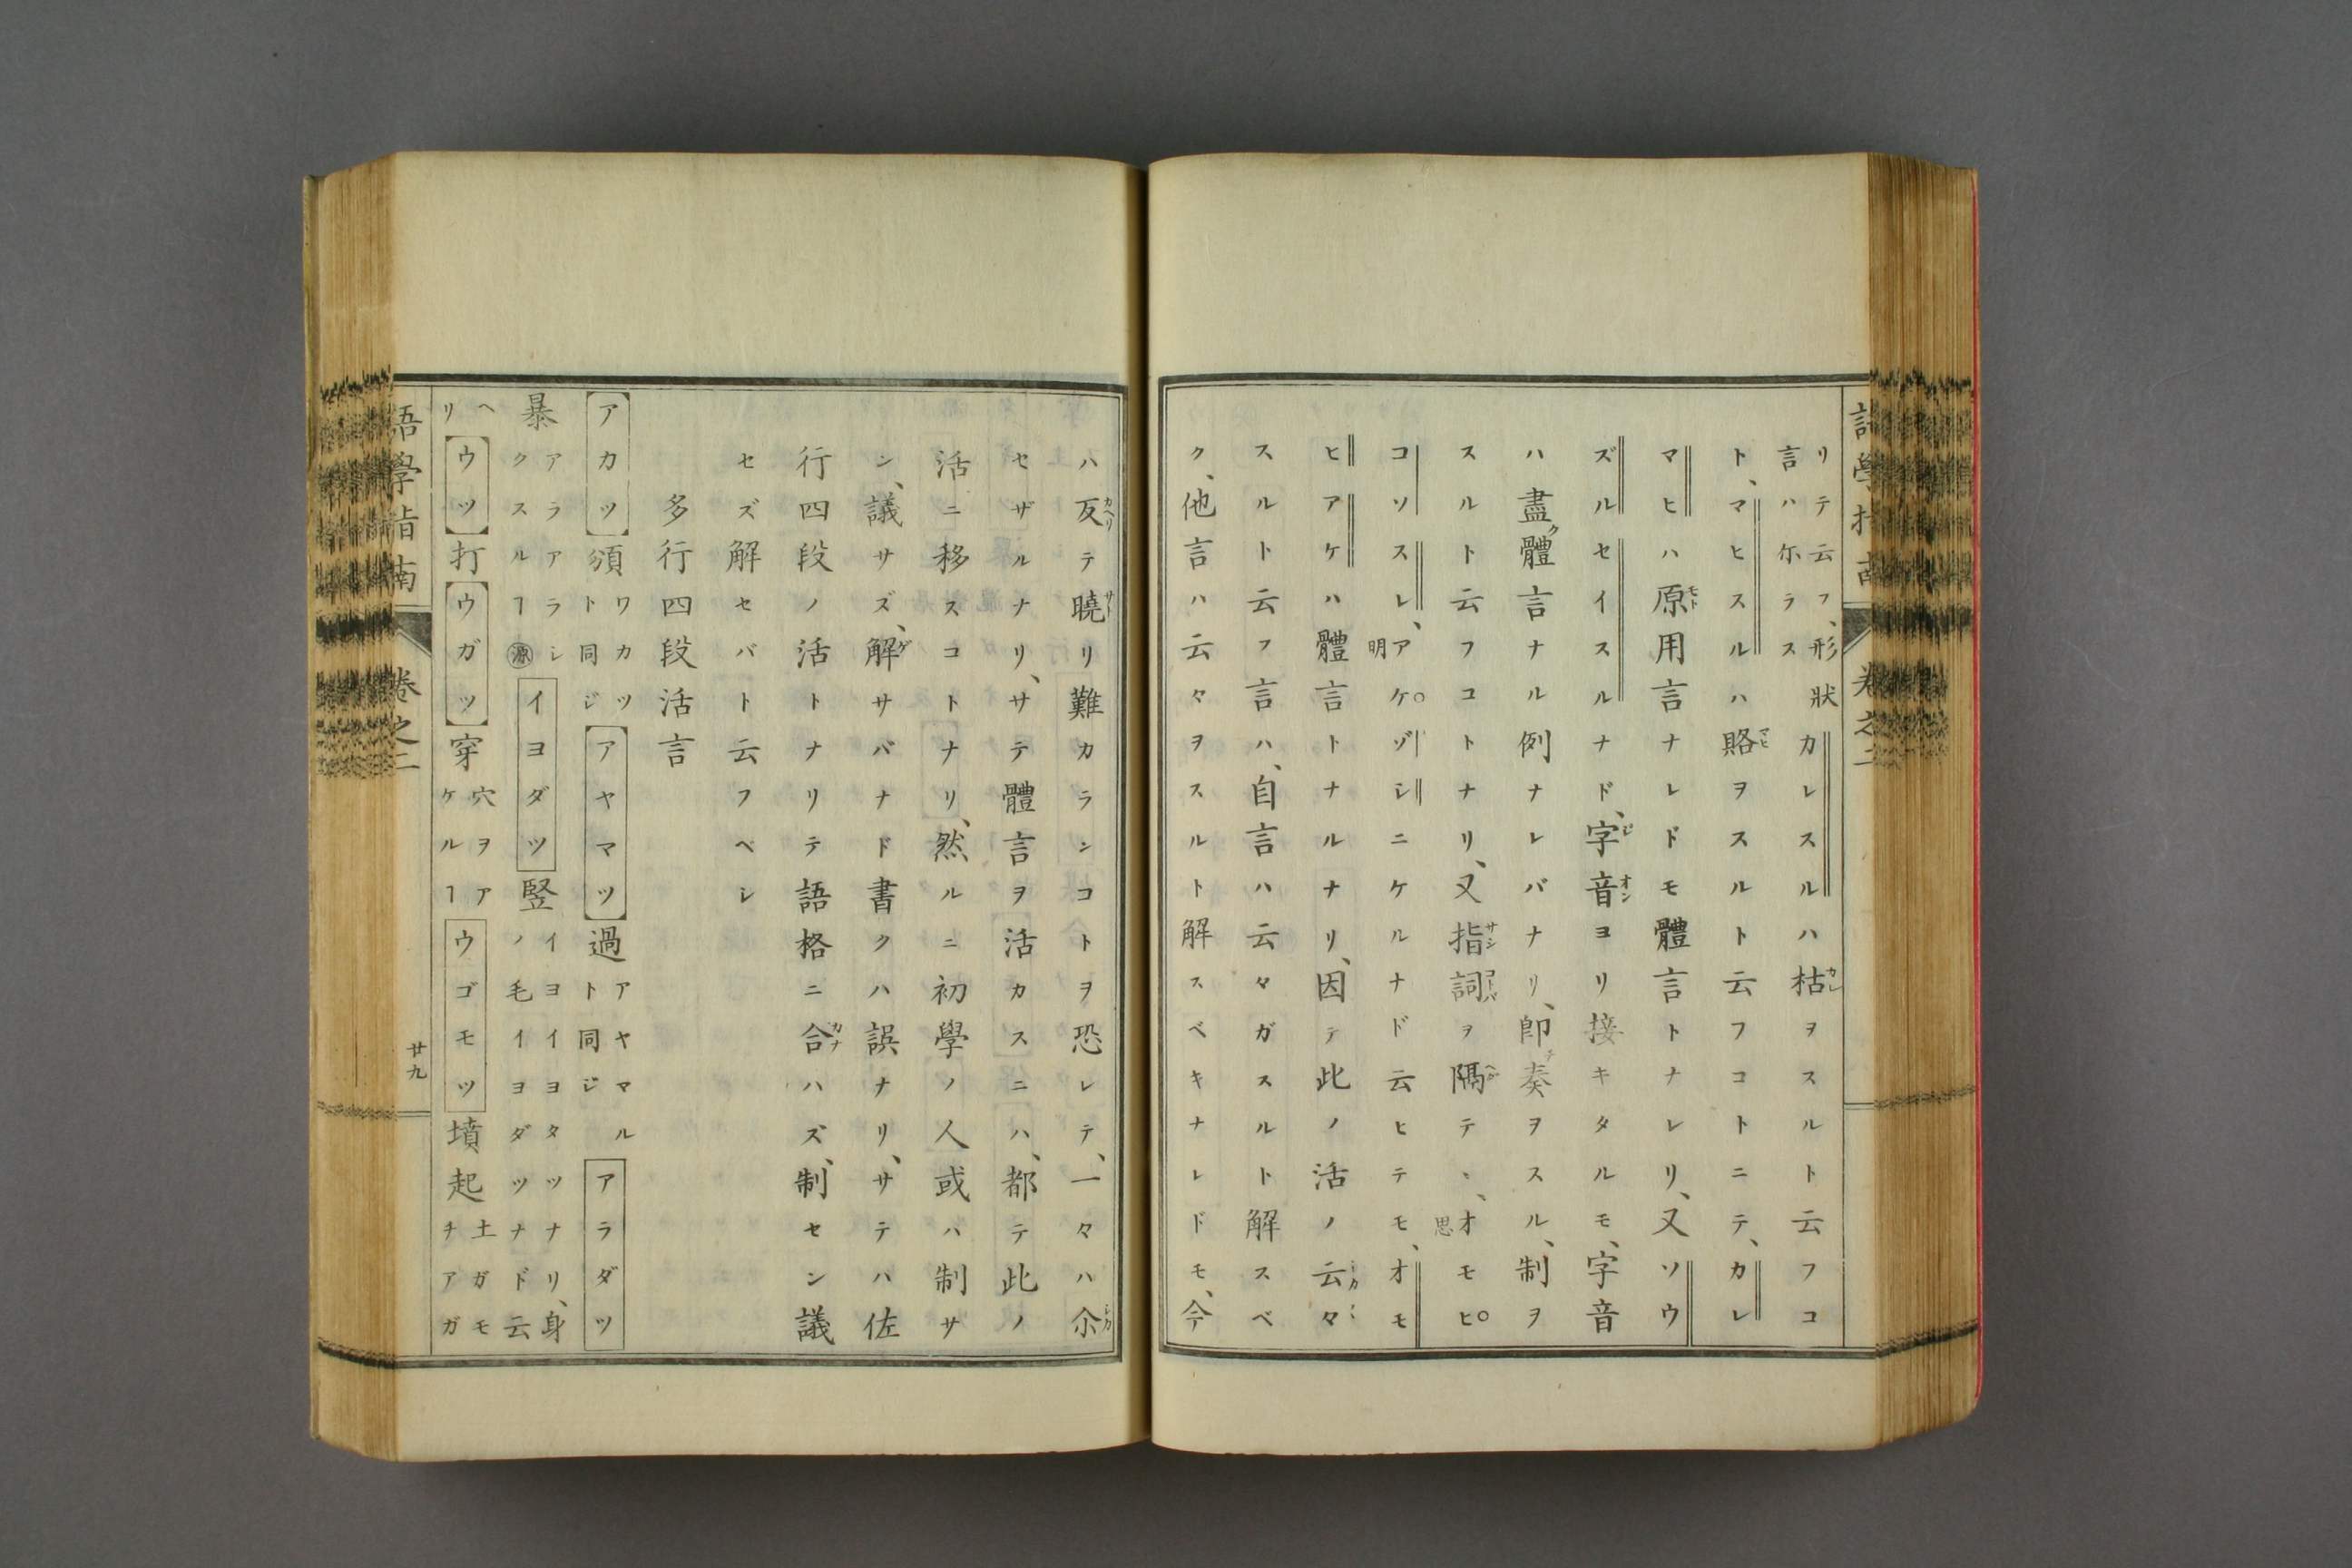 リテ云フ、形狀
言ハ尓ラス
カレスルハ枯ヲスルト云フコ
ト、マヒスルハ賂ヲスルト云フコトニテ、カレ
マヒハ原用言ナレドモ體言トナレリ、又ソウ
ズルセイスルナド、字音ヨリ接キタルモ、字音
ハ盡ク體言ナル例ナレバナリ、卽チ奏ヲスル、制ヲ
スルト云フコトナリ、又指詞ヲ隔テヽ、オモヒ
コソスレ、アケゾシニケルナド云ヒテモ、オモ
ヒアケハ體言トナルナリ、因テ此ノ活ノ云々
スルト云フ言ハ、自言ハ云々ガスルト解スベ
ク、他言ハ云々ヲスルト解スベキナレドモ、今
ハ反テ曉リ難カランコトヲ恐レテ、一々ハ尒
セザルナリ、サテ體言ヲ活カスニハ、都テ此ノ
活ニ移スコトナリ、然ルニ初學ノ人或ハ制サ
ン、議サズ、解サバナド書クハ誤ナリ、サテハ佐
行四段ノ活トナリテ語格ニ合ハズ、制セン議
セズ解セバト云フベシ
多行四段活言
アカツ頒ワカツト同ジアヤマツ過アヤマルト同ジアラダツ
暴アラアラシクスルヿ源イヨダツ竪イヨイヨタツナリ、身ノ毛イヨダツナド云
ヘリウツ打ウガツ穿穴ヲアケルヿウゴモツ墳起土ガモチアガ
語學指南
卷之二
廿九